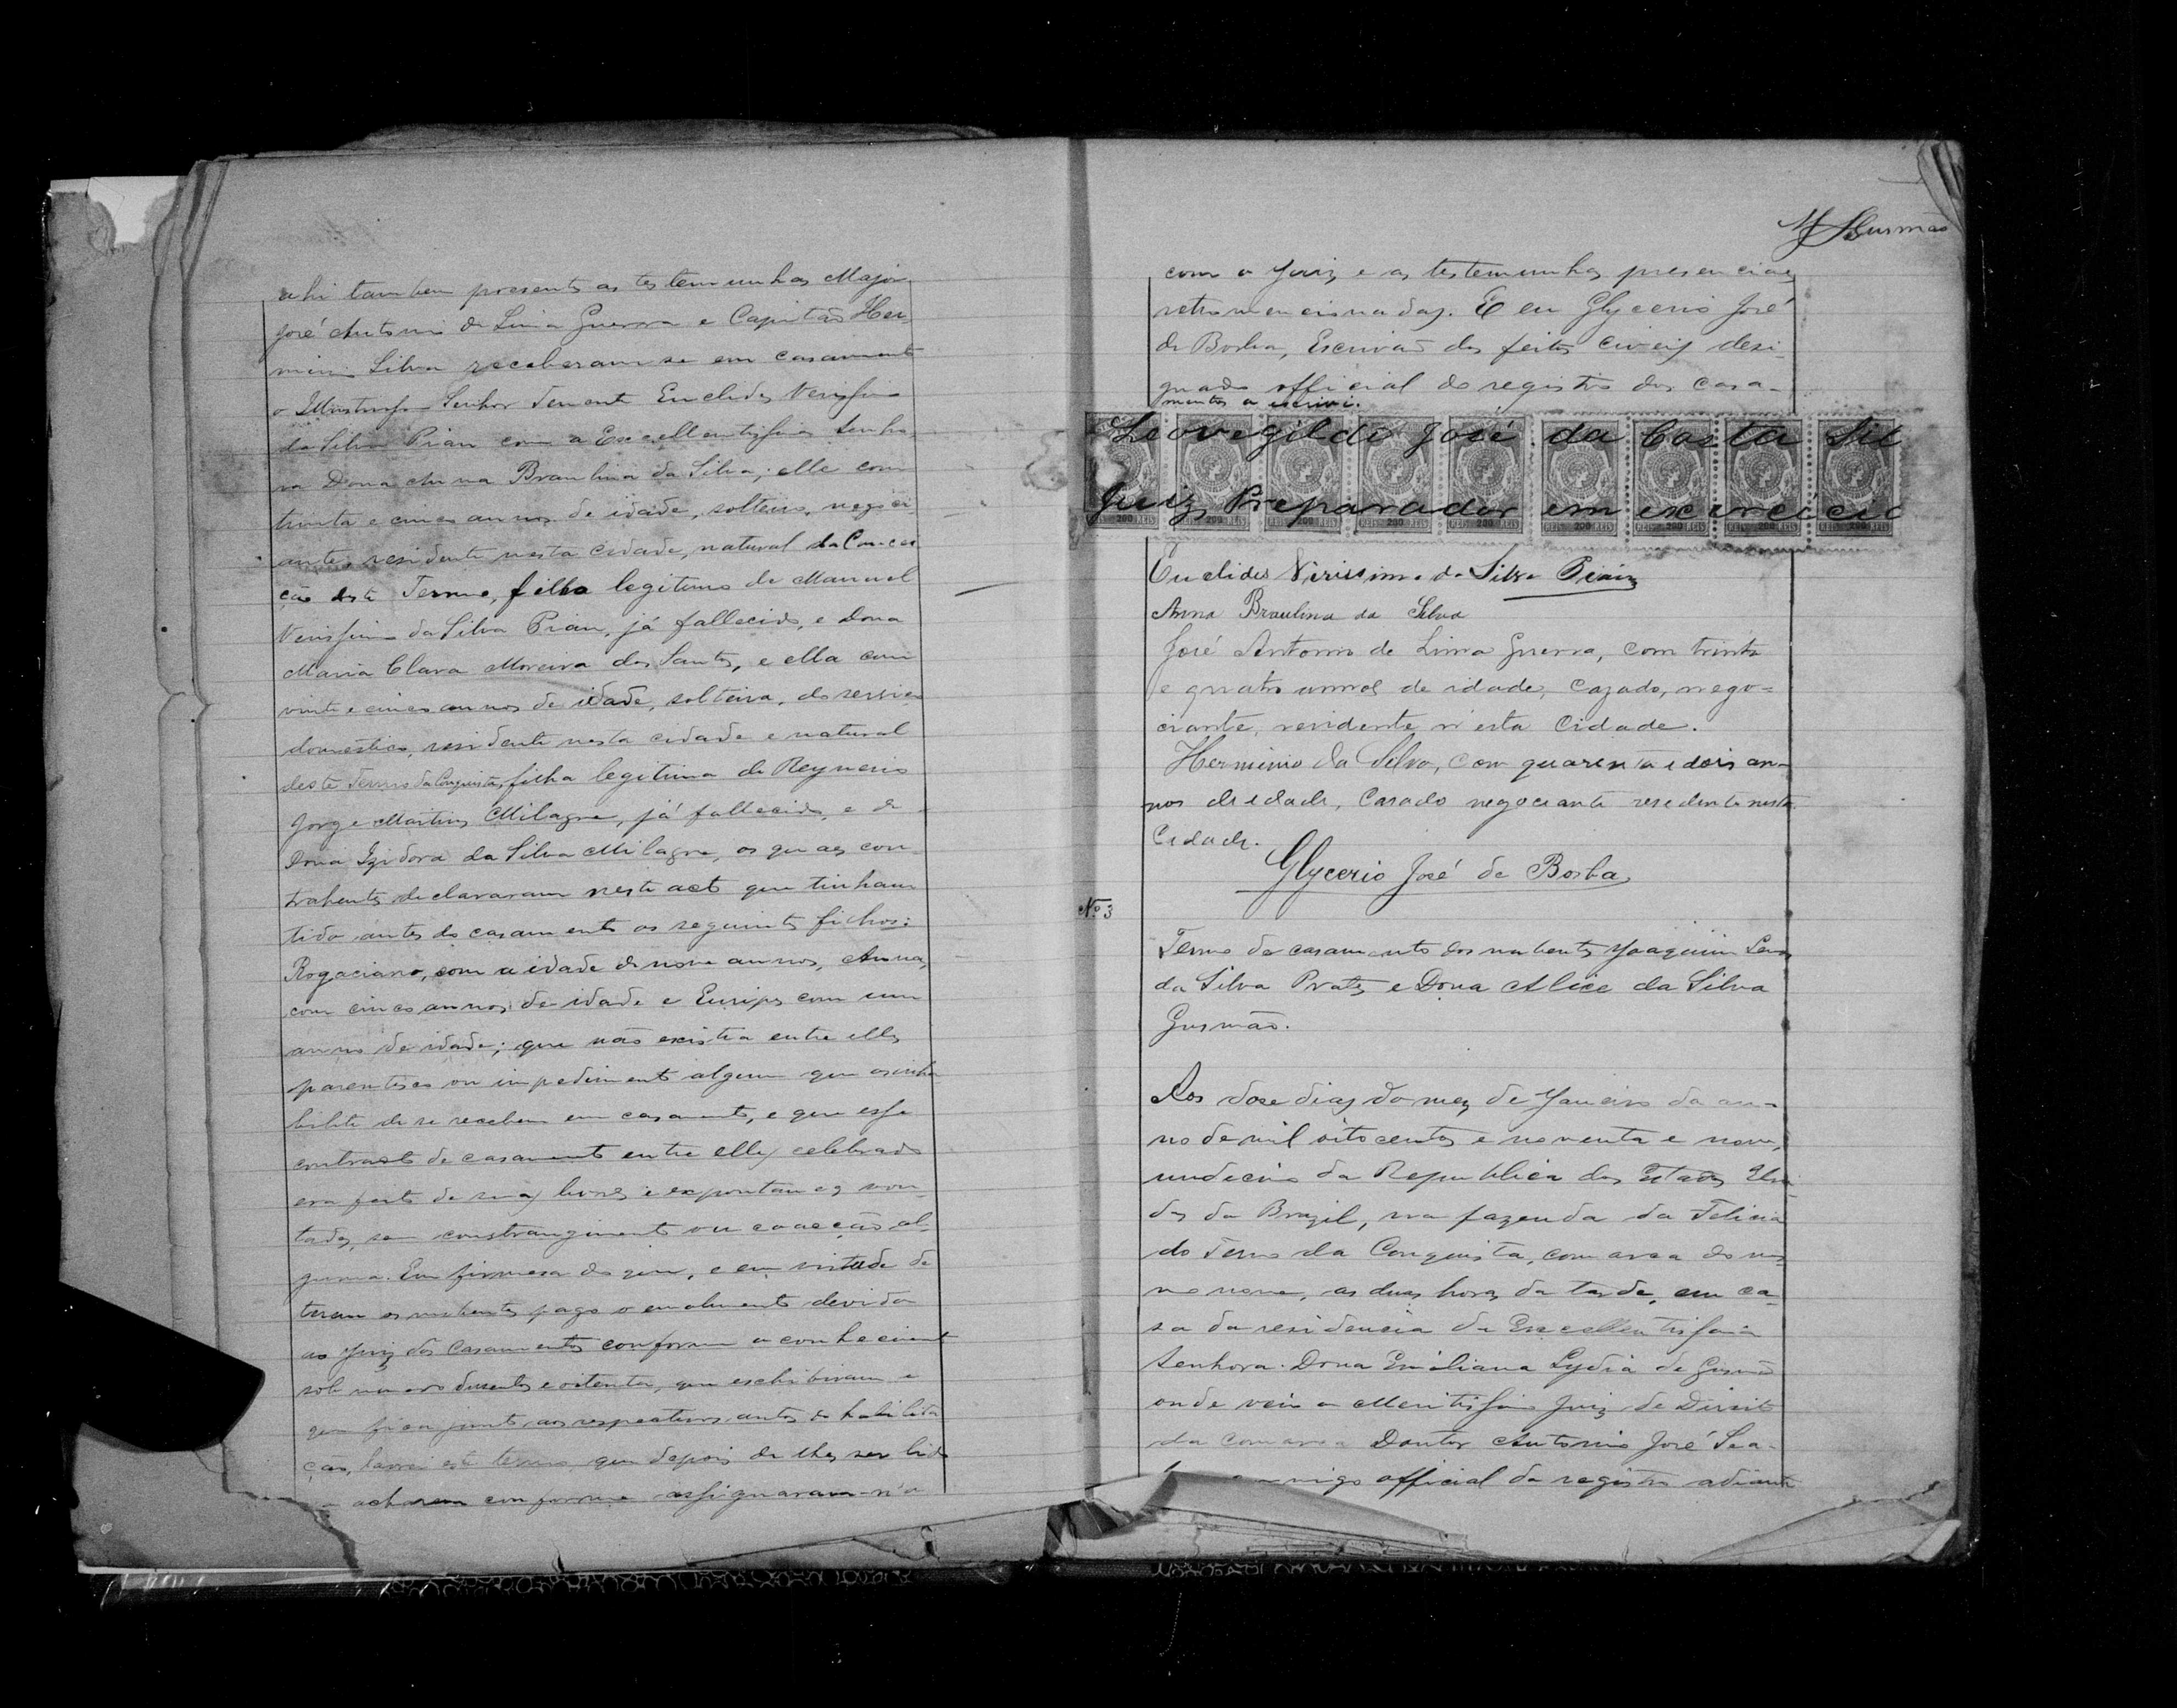 ahi tambem presents as testemunhas Major
José Antonio de Lima Guerra e Capitão Her-
minio Silva receberam se em casamento
o Illustrissimo Senhor Tenente Euclides Verissimo
da Silva Piau com a Excellentissima Senho-
ra Dona Anna Braulina da Silva; elle com
trinta e cinco annos de idade, solteiro, negoci-
ante, residente nesta cidade, natural da Concei-
ção deste Termo, filho legitimo de Manuel
Verissimo da Silva Piau, já fallecido, e Dona
Maria Clara Moreira dos Santos, e ella com
vinte e cinco annos de idade, solteira, do serviço
domestico, residente nesta cidade e natural
deste Termo da Conquista, filha legitima de Reynerio
Jorge Martins Milagre, já fallecido, e de
Dona Izidora da Silva Milagre, os quaes con-
trahentes declararam neste acto que tinham
tido antes do casamento os seguintes filhos:
Rogaciano, com a idade de nove annos, Anna,
com cinco annos de idade e Euripes com um
anno de idade; que não existia entre elles
parentesco ou impedimento algum que os inha-
bilite de se receber em casamento, e que esse
contracto de casamento entre elles celebrado
era feito de suas livres e expontaneas von-
tades, sem constrangimento ou coacção al-
guma. Em firmesa do que, e em virtude de
terem os nubentes pago o emolumento devido
ao Juiz dos Casamentos conforme o conhecimento
sob numero dusentos e oitenta, que exhibiram e
que fica junto aos respectivos autos de habilita-
ção, lavrei este termo que depois de lhes ser lido
e acharem conforme assignaram-n'o
M Gusmão
com o Juiz e as testemunhas presenciaes
retromencionadas. E eu Glycerio José
de Borba, Escrivão dos feitos civeis desi-
gnado official do registro dos casa-
mentos o escrivi.
Leovegildo José da Costa Sil
Juiz Preparador em exercicio
200 REIS 200 REIS 200 REIS 200 REIS 200 REIS 200 REIS 200 REIS 200 REIS
Euclides Virissimo da Silva Piau
Anna Braulina da Silva
José Antonio de Lima Guerra, com trinta
e quatro annos de idade, cazado, nego=
ciante, residente n'esta Cidade.
Herminio da Silva, com quarenta e dois an-
nos de edade, Casado negociante residente nesta
Cidade.
Glycerio José de Borba
Nº 3
Termo de casamento dos nubentes Joaquim
da Silva Prates e Dona Alice da Silva
Gusmão.
Aos dose dias do mez de Janeiro do an-
no de mil oitocentos e noventa e nove,
undecimo da Republica dos Estados Uni-
dos do Brazil, na fazenda da Felicia
do Termo da Conquista, comarca do mes-
mo nome, as duas horas da tarde, em ca-
sa da residencia da Excellentissima
Senhora Dona Emiliana Lydia de Gusmão
onde veio o Meritissimo Juiz de Direito
da comarca Doutor Antonio José
official do registro adiante